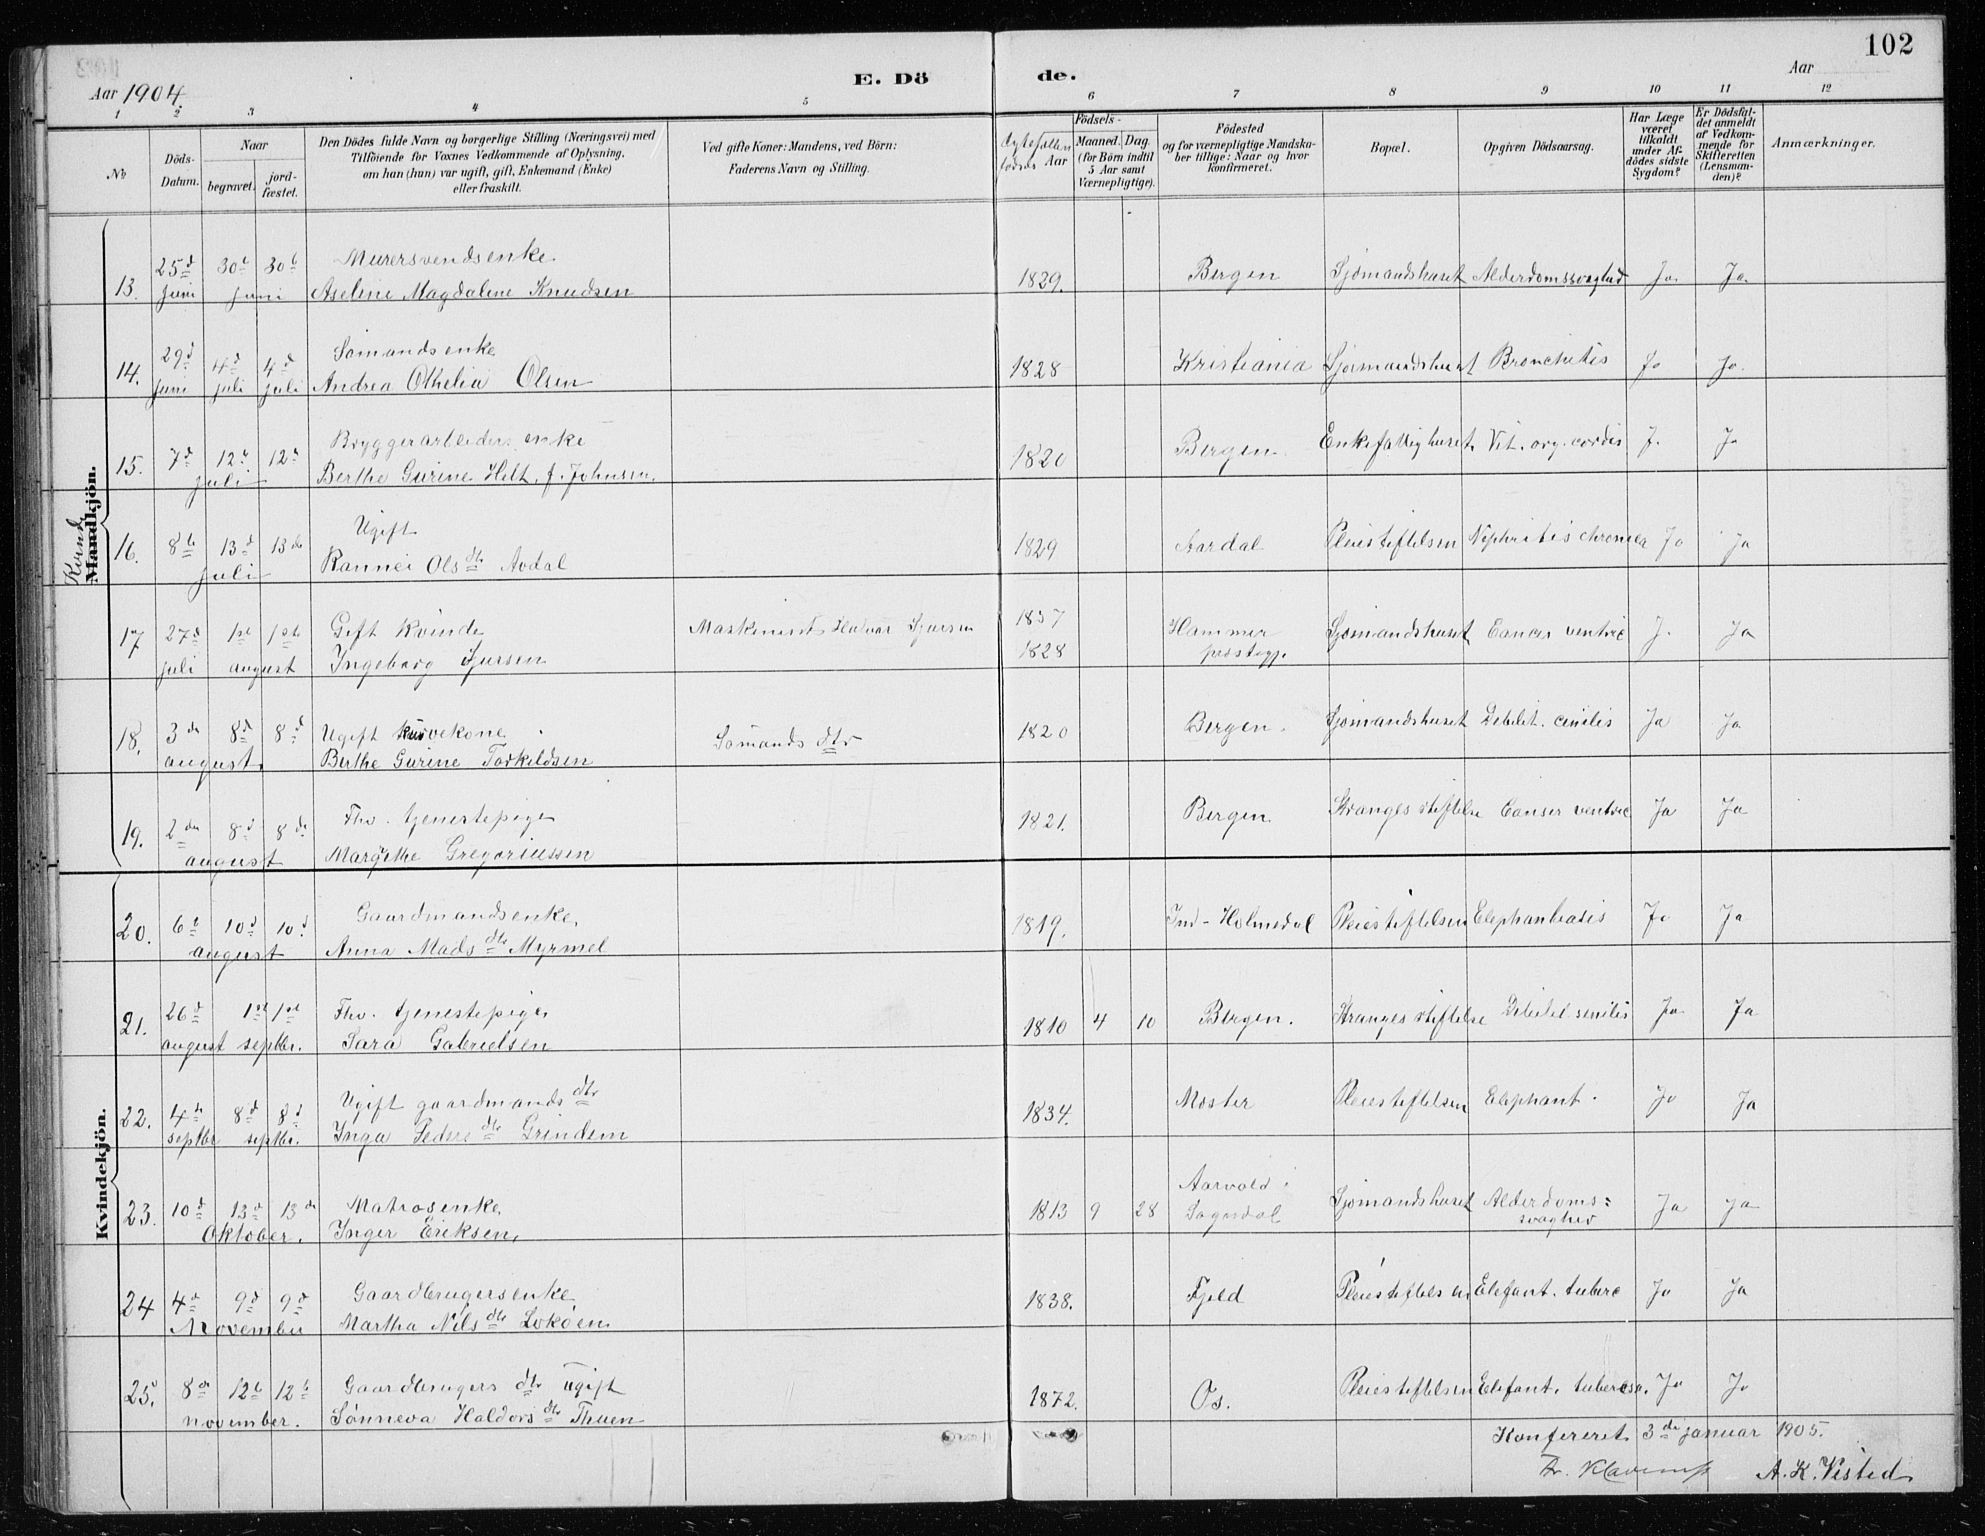 102
Aar 1904. E. Dö de. Aar
1 2 3 4 5 6 7 8 9 10 11 12
No
Döds-Datum.
Naar
begravet. jord-fæstet.
Den Dödes fulde Navn og borgerlige Stilling (Næringsvei) med
Tilföiende for Voxnes Vedkommende af Oplysning,
om han (hun) var ugift, gift, Enkemand (Enke)
eller fraskilt.
Ved gifte Koner: Mandens, ved Börn:
Faderens Navn og Stilling.
Födsels-
Aar
Maaned. Dag.
(for Börn indtil
5 Aar samt
Værnepligtige).
Födested
og for værnepligtige Mandska-
ber tillige: Naar og hvor
konfirmeret.
Bopæl.
Opgiven Dödsaarsag.
Har Læge
været
tilkaldt
under Af-
dödes sidste
Sygdom?
Er Dödsfal-
det anmeldt
af Vedkom-
mende for
Skifteretten
(Lensman-
den)?
Anmærkninger.
Kvind
Mandkjön.
13. 25d juni 30te 30te juni Murersvendsenke
Aselene Magdalene Knudsen 1829. Bergen Sjømandshuset Alderdomssvaghed Ja. Ja.
14. 29d juni 4d juli 4d juli Sømandsenke
Andrea Othelia Olsen 1828 Kristiania Sjømandshuset Bronchitis Ja Ja.
15. 7d 12te 12te juli Bryggerarbeiders enke
Berthe Gurine Helt, f. Johnsen. 1820 Bergen Enkefattighuset Vit. org. cordis J. Ja
16. 8de 13d 13de juli Ugift
Rannei Olsdtr Avdal 1829 Aardal Pleiestiftelsen Nephritis chronica Ja Ja
17 27d juli 1ste 1ste august Gift kvinde
Ingeborg Sjursen Maskinist Halvar Sjursen 1837
1828 Hammer
prestegj. Sjømandshuset Cancer ventric J. Ja
18. 3de 8d 8d august. Ugift kurvekone
Berthe Gurine Torkeldsen Sømands dtr 1820 Bergen. Sjømandshuset Debilit. cenilis Ja Ja
19. 2den 8d 8de august Fhv. tjenestepige
Margrethe Gregoriussen 1821. Bergen Stranges stiftelse Canser ventric Ja Ja
Kvindekjön.
20. 6te 10d 10d august Gaardmandsenke
Anna Madsdtr Myrmel 1819. Ind-Holmedal Pleiestiftelsen Elephantiasis Ja Ja
21. 26d august 1ste 1ste septbr. Fhv. tjenestepige
Sara Gabrielsen 1810 4 10 Bergen. Stranges stiftelse Debilit senilis Ja Ja
22. 4de septbr 8d 8d septbr. Ugift gaardmands dtr
Inga Pedersdtr Grindem 1834. Moster Pleiestiftelsen Elephant. Ja Ja
23. 10d 13d 13de Oktober. Matrosenke
Inger Eriksen, 1813 9 28 Aarvold i
Sogndal Sjømandshuset Alderdoms-
svaghed Ja Ja
24 4d 9d 9d November Gaardbrugersenke
Martha Nilsdtr Lokøen 1838. Fjeld Pleiestiftelsen Elefant. tuberc Ja Ja
25. 8de 12te 12te november. Gaardbrugers dtr ugift
Sønneva Haldorsdtr Thuen 1872. Os. Pleiestiftelsen Elefant. tuberosa. Ja Ja
Konfereret 3de januar 1905.
A. K. Visted